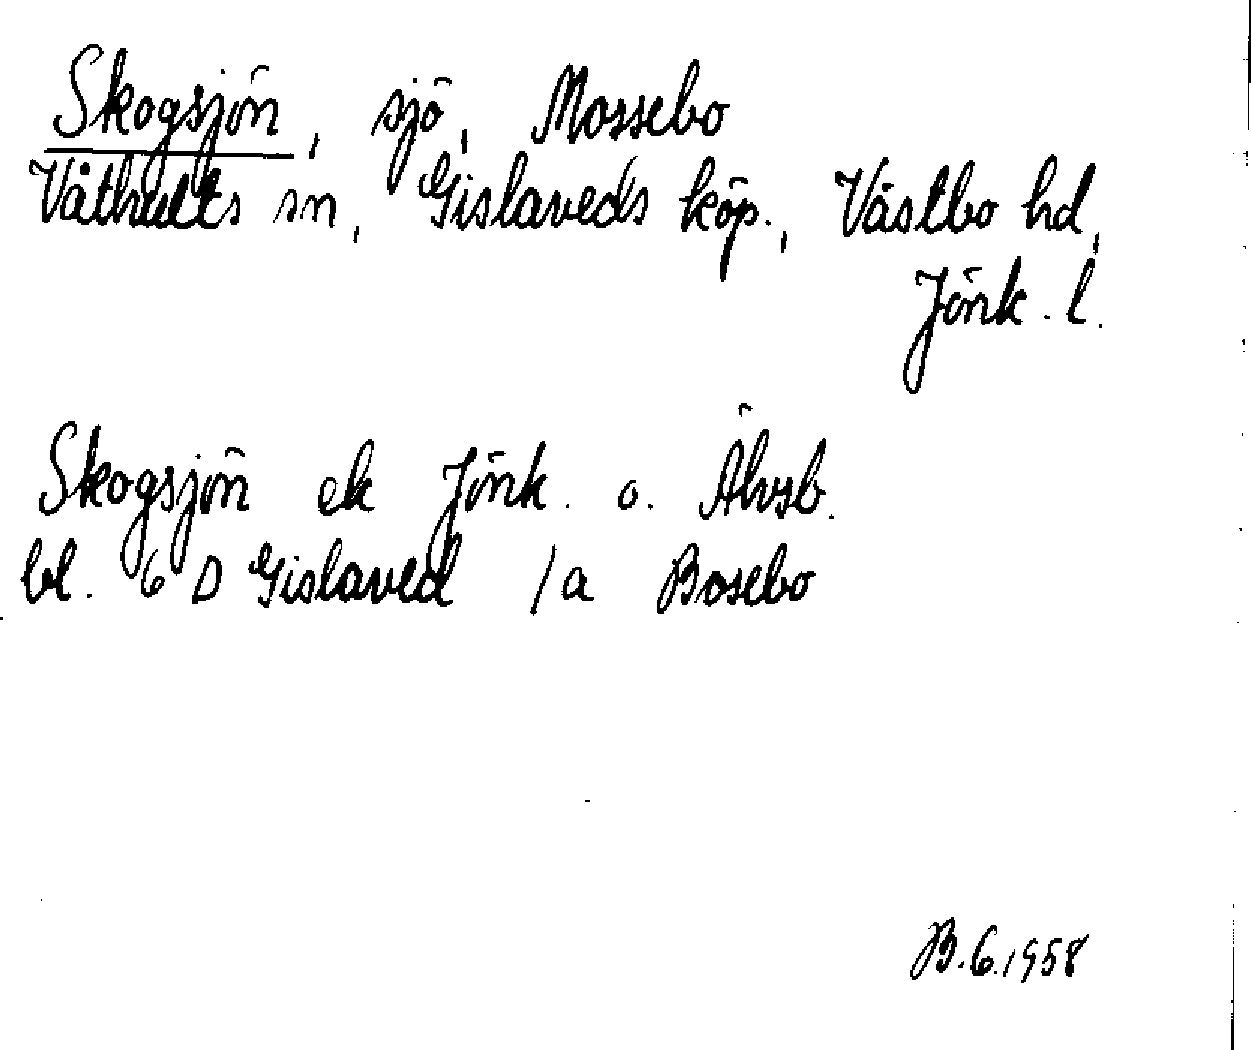 Skogsjön, sjö, Mossebo
Våthults sn, Gislaveds köp., Västbo hd,
Jönk. l.
Skogsjön ek Jönk. o. Älvsb.
bl. 6 D Gislaved 1a Bosebo
B.6.1958